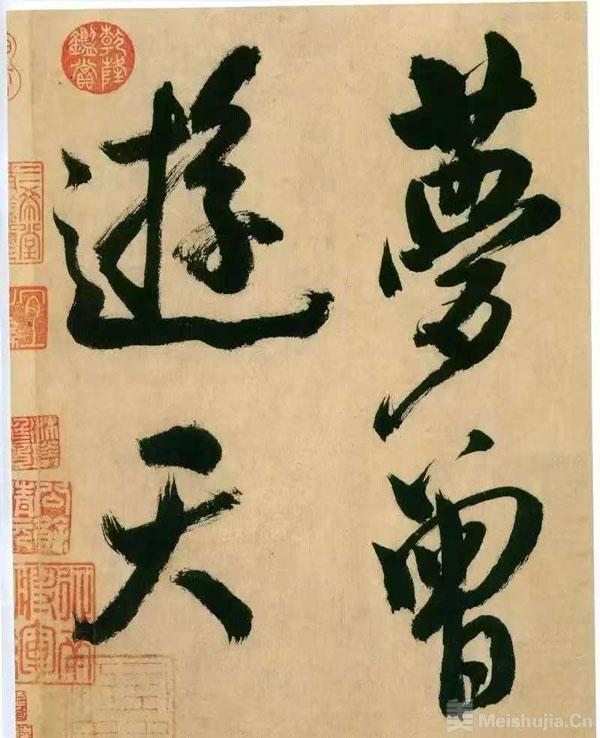 夢曾
遊天
乾隆
鑑賞
Meishujia.Cn